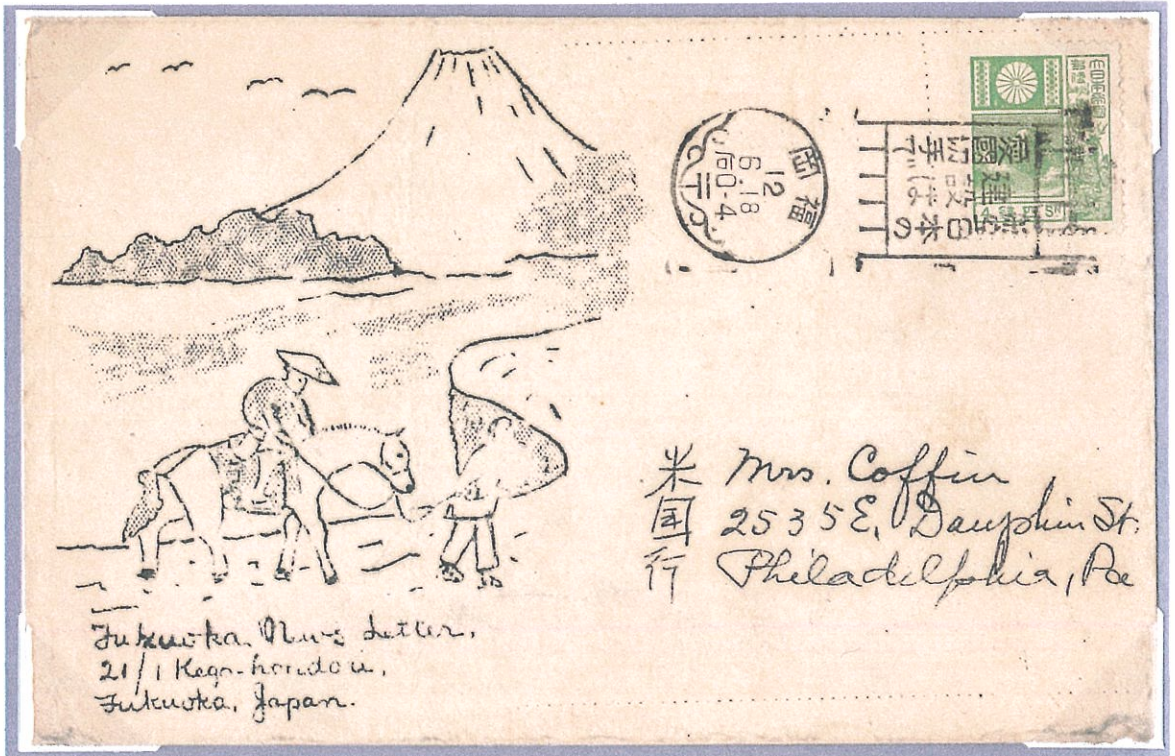 福岡
12
6.18
后0-4
愛國
切手で
日本の
米国行
Mrs. Coffin
2535 E. Dauphin St.
Philadelphia, Pa
Fukuoka News Letter,
21/1 Kego-hondou,
Fukuoka, Japan.